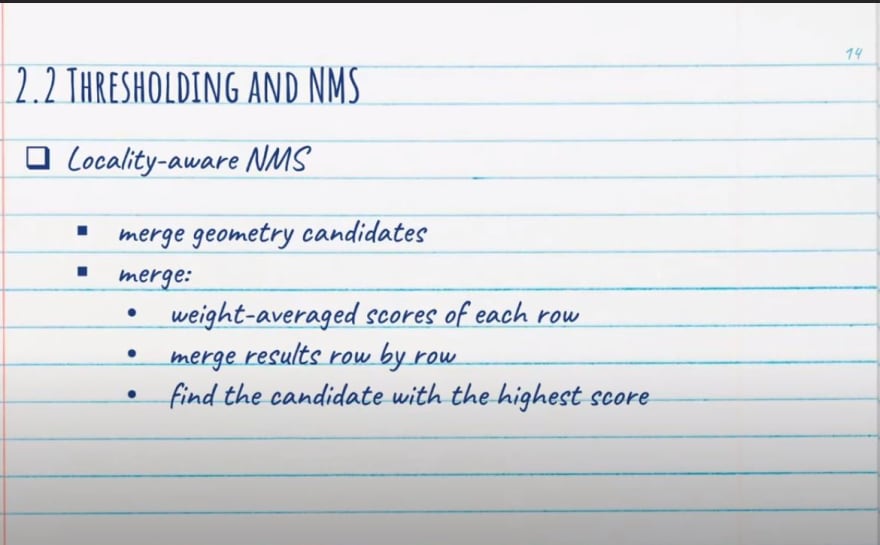 14
2.2 THRESHOLDING AND NMS
Locality-aware NMS
merge geometry candidates
merge:
weight-averaged scores of each row
merge results row by row
find the candidate with the highest score